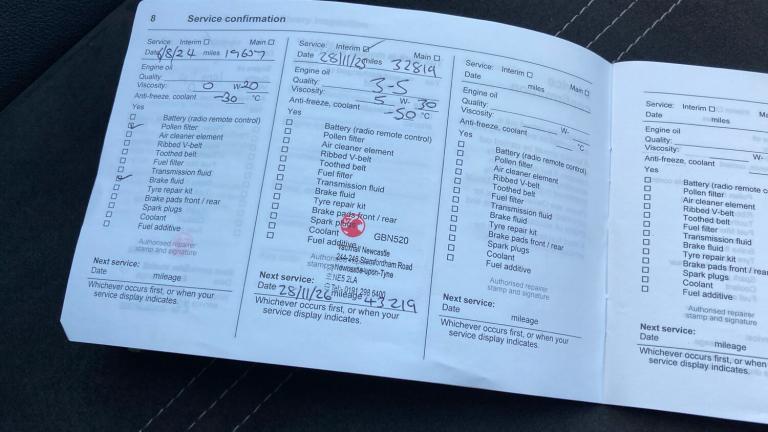 8 Service confirmation
Service: Interim Main
Date 6/8/24 miles 19657
Engine oil
Quality:
Viscosity: 0 W- 20
Anti-freeze, coolant -30 °C
Yes
Battery (radio remote control)
Pollen filter
Air cleaner element
Ribbed V-belt
Toothed belt
Fuel filter
Transmission fluid
Brake fluid
Tyre repair kit
Brake pads front / rear
Spark plugs
Coolant
Fuel additive
Authorised repairer
stamp and signature
Next service:
Date mileage
Whichever occurs first, or when your
service display indicates.
Service: Interim Main
Date 28/11/25 miles 32819
Engine oil
Quality: 3-5
Viscosity: 5 W- 30
Anti-freeze, coolant -50 °C
Yes
Battery (radio remote control)
Pollen filter
Air cleaner element
Ribbed V-belt
Toothed belt
Fuel filter
Transmission fluid
Brake fluid
Tyre repair kit
Brake pads front / rear
Spark plugs
Coolant GBN520
Fuel additive
Vauxhall Newcastle
Stamfordham Road
Newcastle-upon-Tyne
NE5 2LA
Tel: 0191 298 6400
Next service:
Date 28/11/26 mileage 42219
Whichever occurs first, or when your
service display indicates.
Service: Interim Main
Date miles
Engine oil
Quality:
Viscosity: W-
Anti-freeze, coolant °C
Yes
Battery (radio remote control)
Pollen filter
Air cleaner element
Ribbed V-belt
Toothed belt
Fuel filter
Transmission fluid
Brake fluid
Tyre repair kit
Brake pads front / rear
Spark plugs
Coolant
Fuel additive
Authorised repairer
stamp and signature
Next service:
Date mileage
Whichever occurs first, or when your
service display indicates.
Service: Interim
Date miles
Engine oil
Quality:
Viscosity: W-
Anti-freeze, coolant
Yes
Battery (radio remote c
Pollen filter
Air cleaner element
Ribbed V-belt
Toothed belt
Fuel filter
Transmission fluid
Brake fluid
Tyre repair kit
Brake pads front / rear
Spark plugs
Coolant
Fuel additive
Authorised repairer
stamp and signature
Next service:
Date mileage
Whichever occurs first, or when
service display indicates.